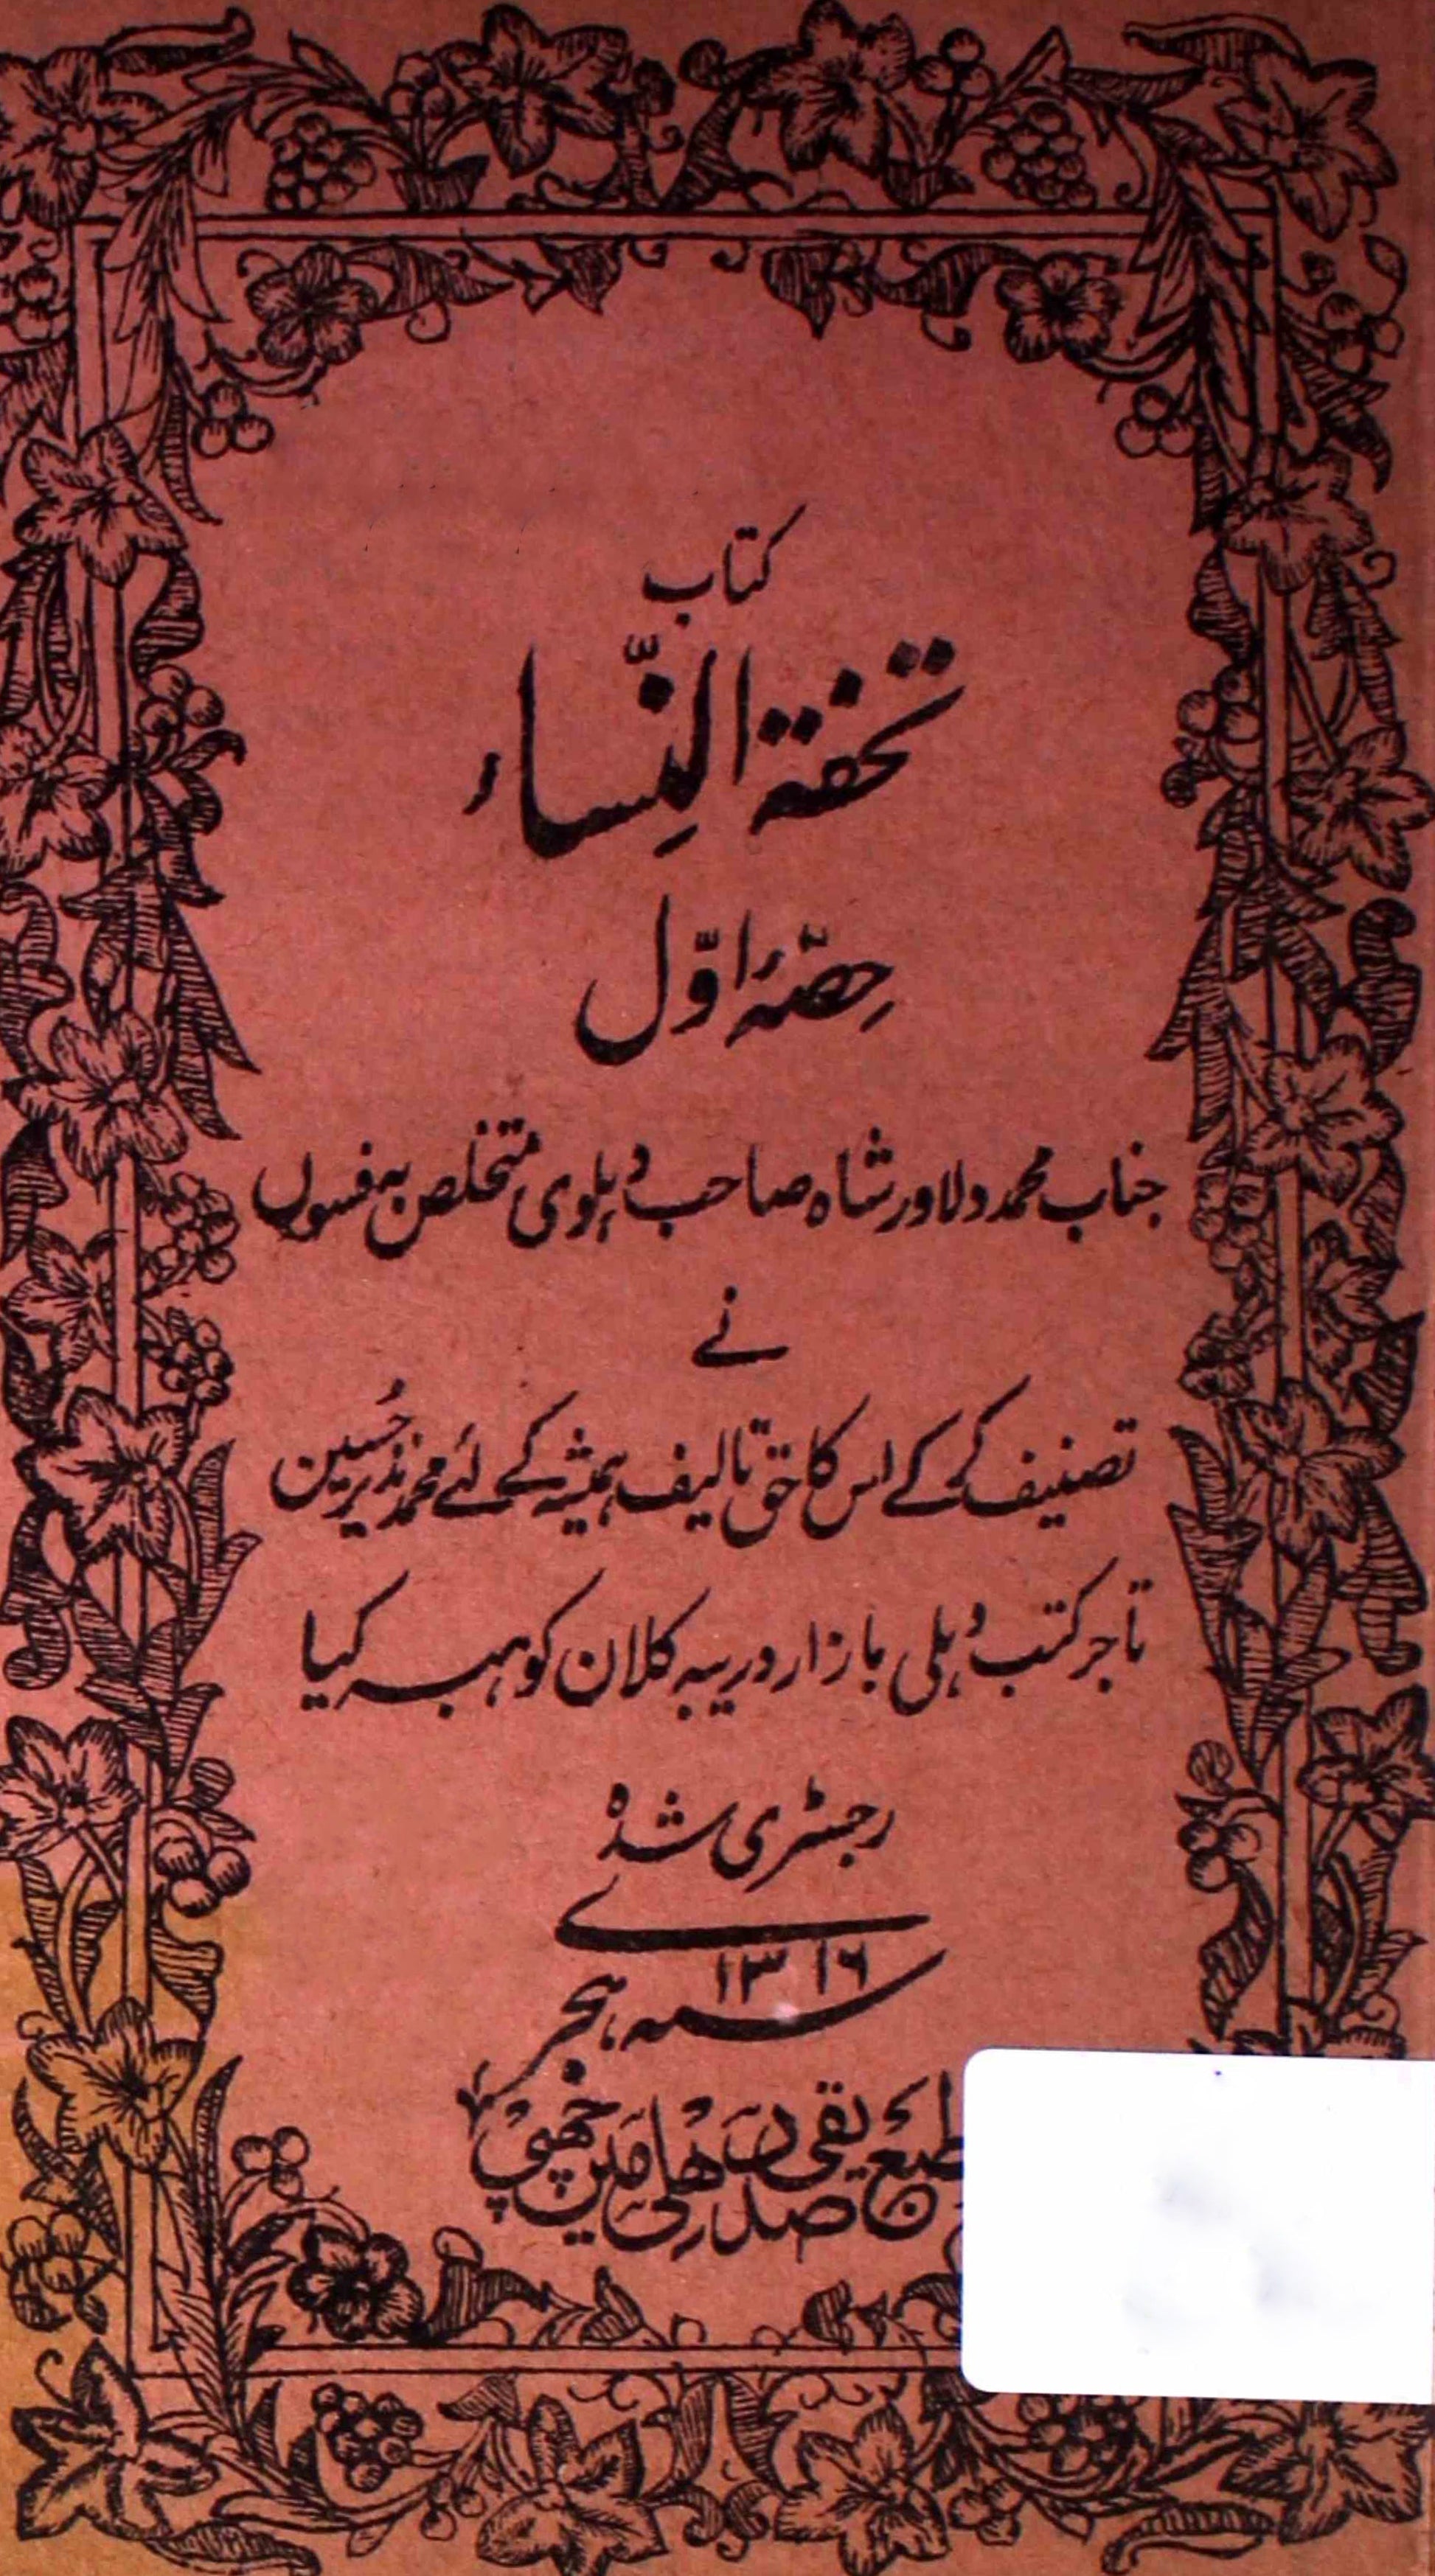 کتاب
تحفۃ النِّساء
حِصّۂ اوّل
جناب محمد دلاور شاہ صاحب دہلوی متخلص بہ فسوں
نے
تصنیف کر کے اس کا حق تالیف ہمیشہ کے لئے محمد نذیر حُسین
تاجر کتب دہلی بازار دریبہ کلان کو ہبہ کیا
رجسٹری شدہ
۱۳۱۶
سنہ ہجرے
صدیقی دھلی مین چھپی